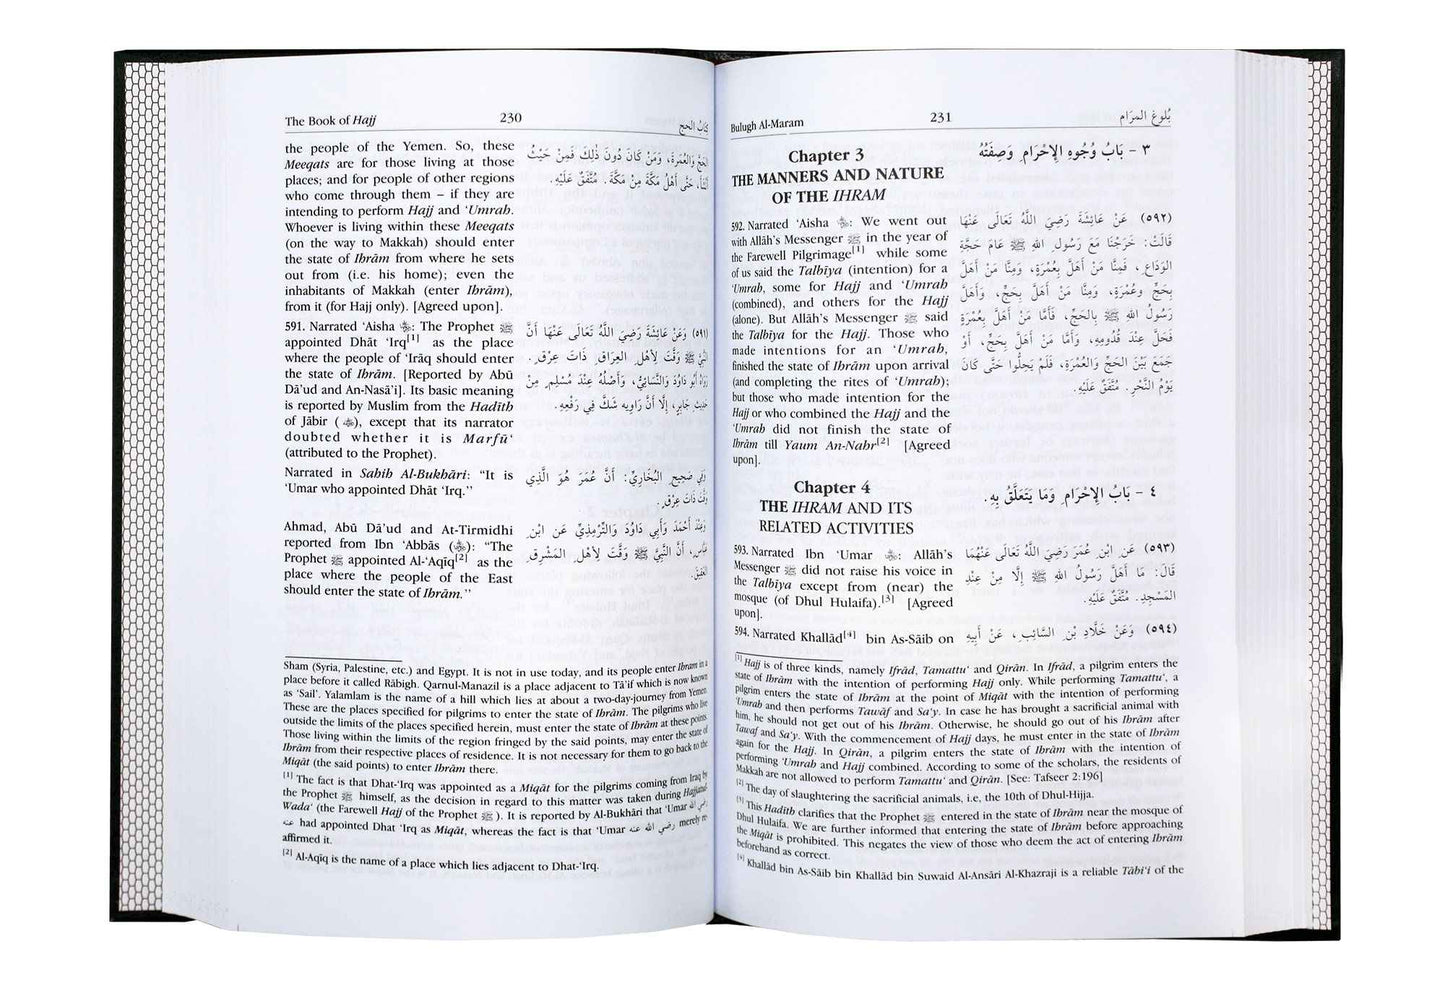 The Book of Hajj
230
كتابُ الحج
the people of the Yemen. So, these
Meeqats are for those living at those
places; and for people of other regions
who come through them – if they are
intending to perform Hajj and ‘Umrah.
Whoever is living within these Meeqats
(on the way to Makkah) should enter
the state of Ihrām from where he sets
out from (i.e. his home); even the
inhabitants of Makkah (enter Ihrām),
from it (for Hajj only). [Agreed upon].
الحَجَّ وَالعُمْرَةَ، وَمَنْ كَانَ دُونَ ذَلِكَ فَمِنْ حَيْثُ
أَنْشَأَ، حَتَّى أَهْلُ مَكَّةَ مِنْ مَكَّةَ. مُتَّفَقٌ عَلَيْهِ.
591. Narrated ‘Aisha: The Prophet ﷺ
appointed Dhāt ‘Irq[1] as the place
where the people of ‘Irāq should enter
the state of Ihrām. [Reported by Abū
Dā’ud and An-Nasā’i]. Its basic meaning
is reported by Muslim from the Hadīth
of Jābir ( ), except that its narrator
doubted whether it is Marfū‘
(attributed to the Prophet).
(٥٩١) وَعَنْ عَائِشَةَ رَضِيَ اللَّهُ تَعَالَى عَنْهَا أَنَّ
النَّبِيَّ ﷺ وَقَّتَ لِأَهْلِ العِرَاقِ ذَاتَ عِرْقٍ.
رَوَاهُ أَبُو دَاوُدَ وَالنَّسَائِيُّ، وَأَصْلُهُ عِنْدَ مُسْلِمٍ مِنْ
حَدِيثِ جَابِرٍ، إِلَّا أَنَّ رَاوِيهِ شَكَّ فِي رَفْعِهِ.
Narrated in Sahih Al-Bukhāri: “It is
‘Umar who appointed Dhāt ‘Irq.”
وَفِي صَحِيحِ البُخَارِيِّ: أَنَّ عُمَرَ هُوَ الَّذِي
وَقَّتَ ذَاتَ عِرْقٍ.
Ahmad, Abū Dā’ud and At-Tirmidhi
reported from Ibn ‘Abbās ( ): “The
Prophet ﷺ appointed Al-‘Aqīq[2] as the
place where the people of the East
should enter the state of Ihrām.”
وَعِنْدَ أَحْمَدَ وَأَبِي دَاوُدَ وَالتِّرْمِذِيِّ عَنِ ابْنِ
عَبَّاسٍ، أَنَّ النَّبِيَّ ﷺ وَقَّتَ لِأَهْلِ المَشْرِقِ
العَقِيقَ.
Sham (Syria, Palestine, etc.) and Egypt. It is not in use today, and its people enter Ihram in a
place before it called Rābigh. Qarnul-Manazil is a place adjacent to Tā’if which is now known
as ‘Sail’. Yalamlam is the name of a hill which lies at about a two-day-journey from Yemen.
These are the places specified for pilgrims to enter the state of Ihrām. The pilgrims who live
outside the limits of the places specified herein, must enter the state of Ihrām at these points.
Those living within the limits of the region fringed by the said points, may enter the state of
Ihrām from their respective places of residence. It is not necessary for them to go back to the
Miqāt (the said points) to enter Ihrām there.
[1] The fact is that Dhat-‘Irq was appointed as a Miqāt for the pilgrims coming from Iraq by
the Prophet ﷺ himself, as the decision in regard to this matter was taken during Hajjatul-
Wada‘ (the Farewell Hajj of the Prophet ﷺ). It is reported by Al-Bukhāri that ‘Umar رضي الله
عنه had appointed Dhat ‘Irq as Miqāt, whereas the fact is that ‘Umar رضي الله عنه merely re-
affirmed it.
[2] Al-Aqīq is the name of a place which lies adjacent to Dhat-‘Irq.
Bulugh Al-Maram
231
بُلُوغ المرَام
Chapter 3
THE MANNERS AND NATURE
OF THE IHRAM
٣ - بَابُ وُجُوهِ الإِحْرَامِ وَصِفَتُهُ
592. Narrated ‘Aisha: We went out
with Allāh’s Messenger ﷺ in the year of
the Farewell Pilgrimage[1] while some
of us said the Talbīya (intention) for a
‘Umrah, some for Hajj and ‘Umrah
(combined), and others for the Hajj
(alone). But Allāh’s Messenger ﷺ said
the Talbīya for the Hajj. Those who
made intentions for an ‘Umrah,
finished the state of Ihrām upon arrival
(and completing the rites of ‘Umrah);
but those who made intention for the
Hajj or who combined the Hajj and the
‘Umrah did not finish the state of
Ihrām till Yaum An-Nahr[2] [Agreed
upon].
(٥٩٢) عَنْ عَائِشَةَ رَضِيَ اللَّهُ تَعَالَى عَنْهَا
قَالَتْ: خَرَجْنَا مَعَ رَسُولِ اللهِ ﷺ عَامَ حَجَّةِ
الوَدَاعِ، فَمِنَّا مَنْ أَهَلَّ بِعُمْرَةٍ، وَمِنَّا مَنْ أَهَلَّ
بِحَجٍّ وَعُمْرَةٍ، وَمِنَّا مَنْ أَهَلَّ بِحَجٍّ، وَأَهَلَّ
رَسُولُ اللهِ ﷺ بِالحَجِّ، فَأَمَّا مَنْ أَهَلَّ بِعُمْرَةٍ
فَحَلَّ عِنْدَ قُدُومِهِ، وَأَمَّا مَنْ أَهَلَّ بِحَجٍّ، أَوْ
جَمَعَ بَيْنَ الحَجِّ وَالعُمْرَةِ، فَلَمْ يَحِلُّوا حَتَّى كَانَ
يَوْمُ النَّحْرِ. مُتَّفَقٌ عَلَيْهِ.
Chapter 4
THE IHRAM AND ITS
RELATED ACTIVITIES
٤ - بَابُ الإِحْرَامِ وَمَا يَتَعَلَّقُ بِهِ.
593. Narrated Ibn ‘Umar: Allāh’s
Messenger ﷺ did not raise his voice in
the Talbīya except from (near) the
mosque (of Dhul Hulaifa).[3] [Agreed
upon].
(٥٩٣) عَنِ ابْنِ عُمَرَ رَضِيَ اللَّهُ تَعَالَى عَنْهُمَا
قَالَ: مَا أَهَلَّ رَسُولُ اللهِ ﷺ إِلَّا مِنْ عِنْدِ
المَسْجِدِ. مُتَّفَقٌ عَلَيْهِ.
594. Narrated Khallād[4] bin As-Sāib on
(٥٩٤) وَعَنْ خَلَّادِ بْنِ السَّائِبِ، عَنْ أَبِيهِ
[1] Hajj is of three kinds, namely Ifrād, Tamattu‘ and Qirān. In Ifrād, a pilgrim enters the
state of Ihrām with the intention of performing Hajj only. While performing Tamattu‘, a
pilgrim enters the state of Ihrām at the point of Miqāt with the intention of performing
‘Umrah and then performs Tawāf and Sa‘y. In case he has brought a sacrificial animal with
him, he should not get out of his Ihrām. Otherwise, he should go out of his Ihrām after
Tawaf and Sa‘y. With the commencement of Hajj days, he must enter in the state of Ihrām
again for the Hajj. In Qirān, a pilgrim enters the state of Ihrām with the intention of
performing ‘Umrah and Hajj combined. According to some of the scholars, the residents of
Makkah are not allowed to perform Tamattu‘ and Qirān. [See: Tafseer 2:196]
[2] The day of slaughtering the sacrificial animals, i.e, the 10th of Dhul-Hijja.
[3] This Hadīth clarifies that the Prophet ﷺ entered in the state of Ihrām near the mosque of
Dhul Hulaifa. We are further informed that entering the state of Ihrām before approaching
the Miqāt is prohibited. This negates the view of those who deem the act of entering Ihrām
beforehand as correct.
[4] Khallād bin As-Sāib bin Khallād bin Suwaid Al-Ansāri Al-Khazraji is a reliable Tābi‘i of the